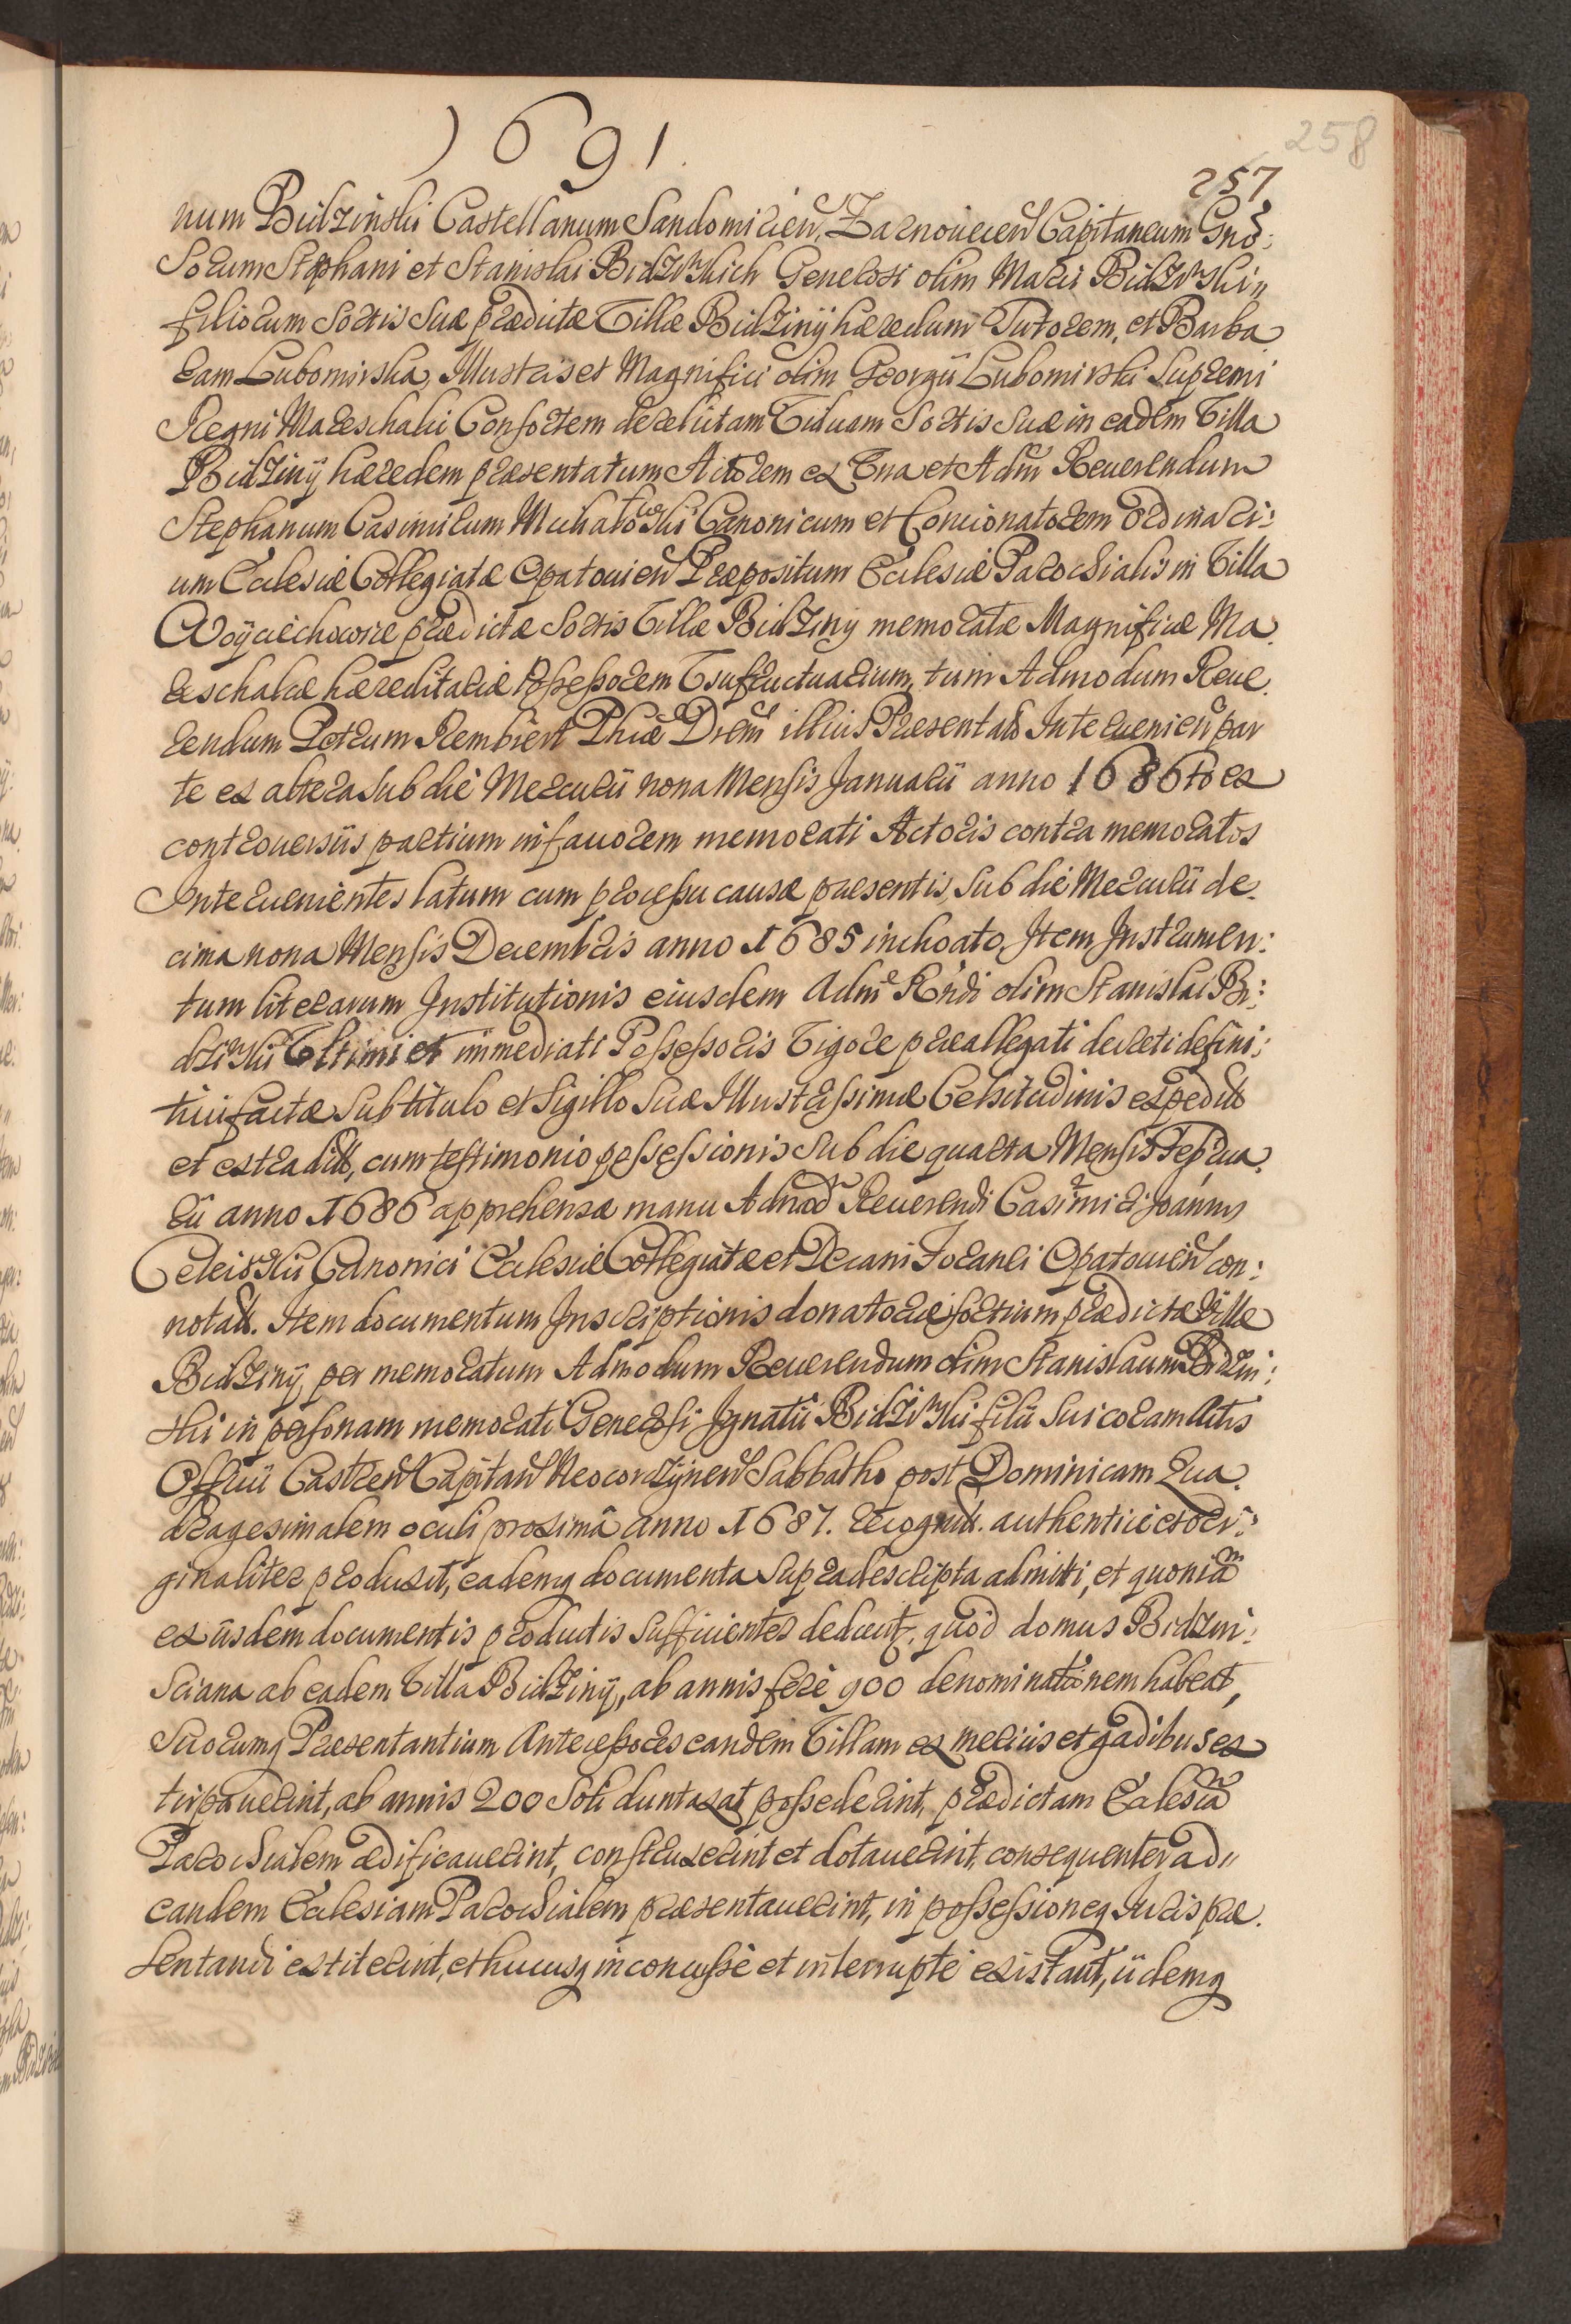 1691
258
257
num Bidzinski Castellanum Sandomirien, Zarnouecen Capitaneum Gnõ:
sorum Stephani et Stanislai Bidzinskich Generosi olim Marci Bidzinski
filiorum sortis suæ prædictæ Villæ Bidziny hæredum Tutorem, et Barba
ram Lubomirska, Illustris et Magnifici olim Georgii Lubomirski Supremi
Regni Mareschalci Consortem derelictam Viduam sortis suæ in eadem Villa
Bidziny hæredem præsentatum Actorem ex Una et Adm Reuerendum
Stephanum Casimirum Michałowski Canonicum et Concionatorem Ordinari:
um Ecclesiæ Collegiatæ Opatouien Præpositum Ecclesiæ Parochialis in Villa
Woyciechowice prædictæ sortis Villæ Bidziny memoratæ Magnificæ Ma
reschalcæ hæreditariæ Possessorem Usufructuarium, tum Admodum Reue
rendum Petrum Rembiert Phiæ Drem illius Præsentatũ Interuenien par
te ex altera sub die Mercurii nona Mensis Januarii anno 1686to ex
controuersiis partium in fauorem memorati Actoris contra memoratos
Interuenientes latum cum processu causæ præsentis, sub die Mercurii de
cima nona Mensis Decembris anno 1685 inchoato, Item Instrumen:
tum literarum Institutionis eiusdem Adm Rndi olim Stanislai Bi:
dzinski Ultimi et immediati Possessoris Vigore præallegati decreti defini:
tiui factæ sub titulo et sigillo suæ Illustrissimæ Celsitudinis expeditũ
et extraditũ, cum testimonio possessionis sub die quarta Mensis Februa
rii anno 1686 apprehensæ manu Admod Reuerendi Casimiri Joannis
Canonici Ecclesiæ Collegiatæ et Decani Foranei Opatouien con:
notatũ. Item documentum Inscriptionis donatoriæ sortium prædictæ Villæ
Bidziny per memoratum Admodum Reuerendum olim Stanislaum Bidzin:
ski in personam memorati Generosi Ignatii Bidzinski filii sui coram Actis
Officii Castren Capitan Neocordzynen Sabbatho post Dominicam Qua
dragesimalem oculi proximâ anno 1687. recognitũ. authentice et ori:
ginaliter produxit, eademq documenta supradescripta admitti, et quoniã
ex iisdem documentis productis sufficienter deducit, quòd domus Bidzin:
sciana ab eadem Villa Bidziny, ab annis ferè 900 denominationem habeat,
suorumq Præsentantium Antecessores eandem Villam ex mericis et gadibus ex
tirpauerint, ab annis 200 soli duntaxat possederint, prædictam Ecclesiã
Parochialem ædificauerint, construxerint et dotauerint, consequenter ad
eandem Ecclesiam Parochialem præsentauerint, in possessioneq Juris præ
sentandi extiterint, et hucusq inconcussè et interruptè existant, iidemq